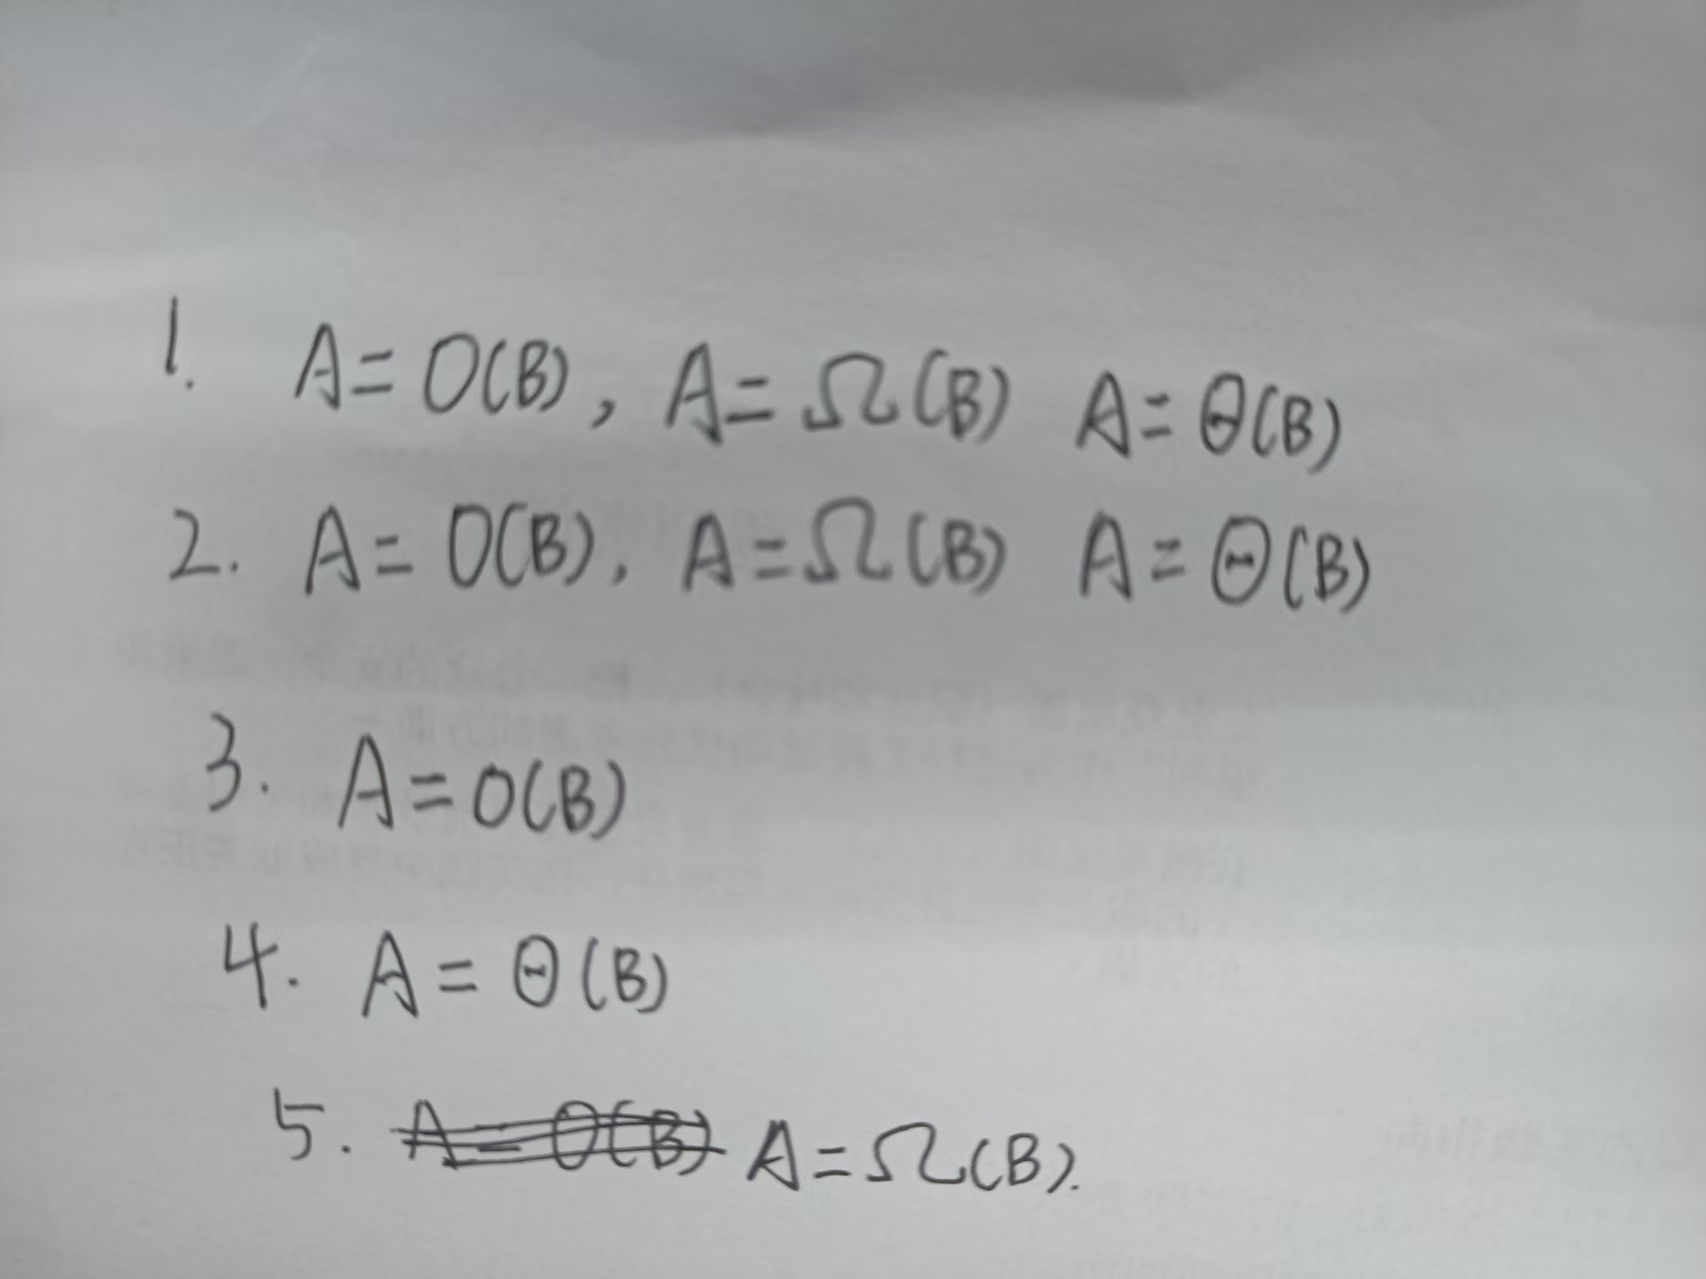 1. A = O(B), A = Ω(B) A = Θ(B)
2. A = O(B), A = Ω(B) A = Θ(B)
3. A = O(B)
4. A = Θ(B)
5. A = O(B) A = Ω(B).